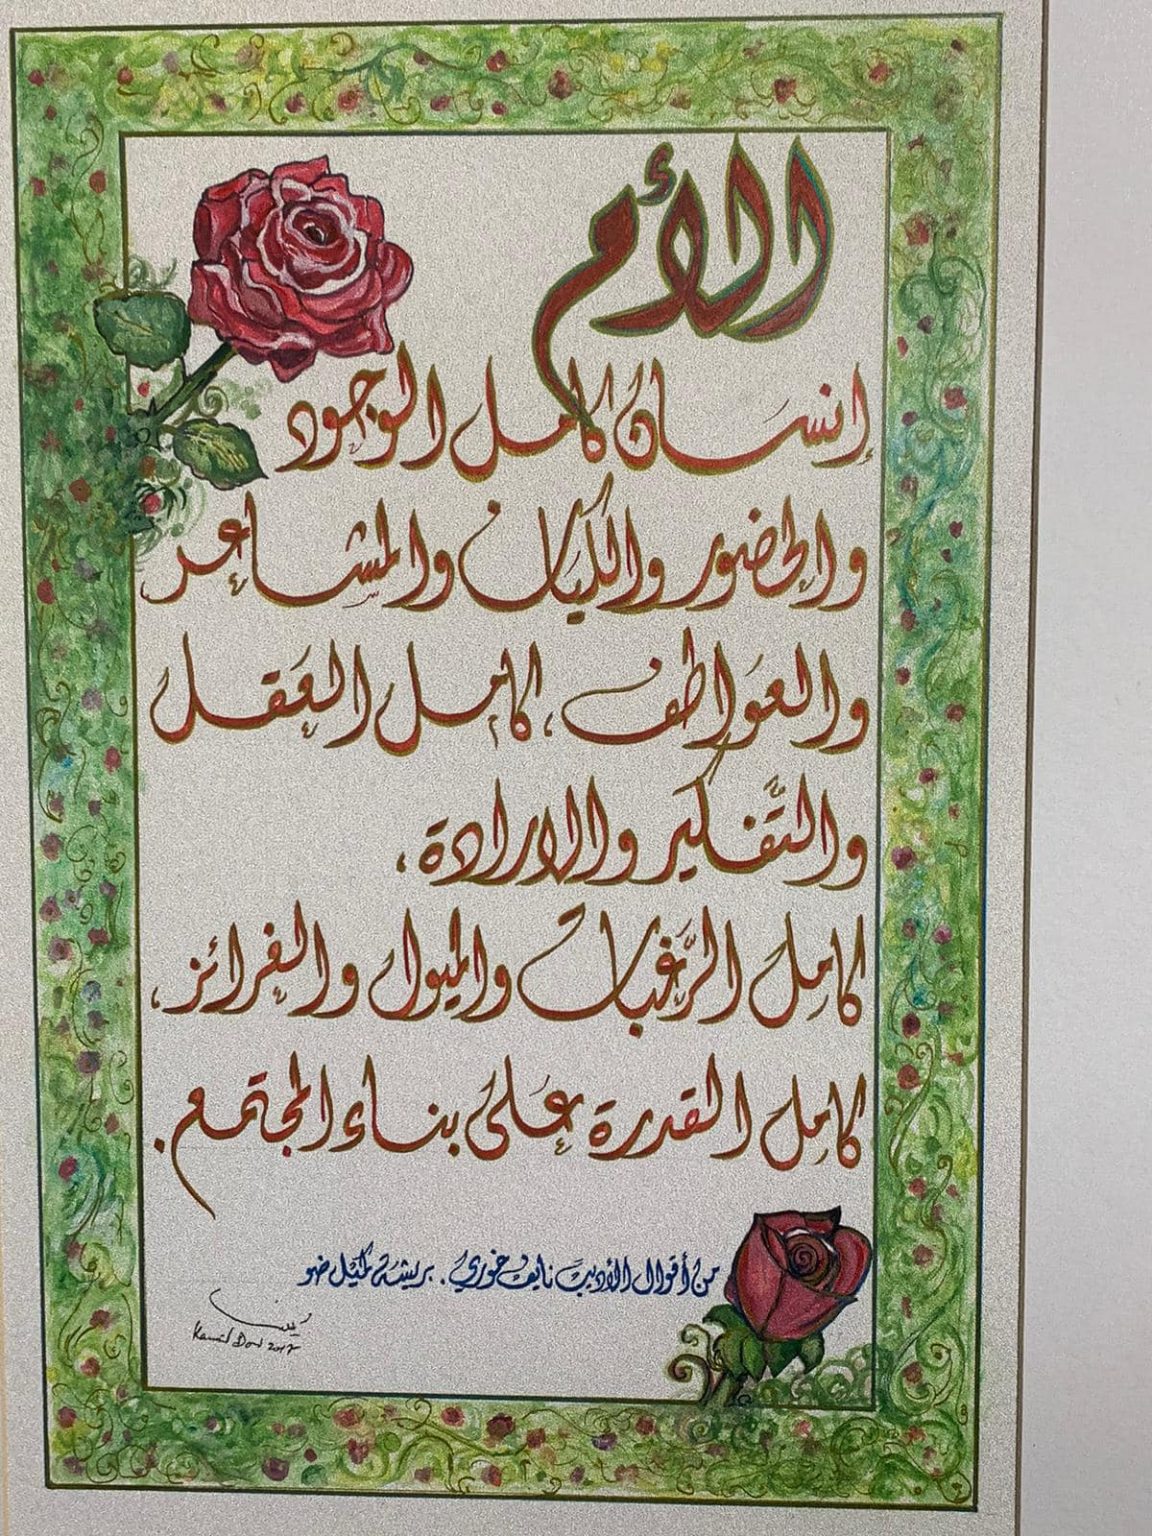 الأم
إنسَانٌ كامل الوجود
والحضور والكيان والمشاعر
والعَواطف، كامل العَقل
والتَّفكير والارادة،
كامِل الرَّغبات والميول والغرائز،
كامِل القدرة عَلى بناء المجتمع.
من أقوال الأديب نايف خوري. بريشة كميل ضو
Kamil Dow 2017